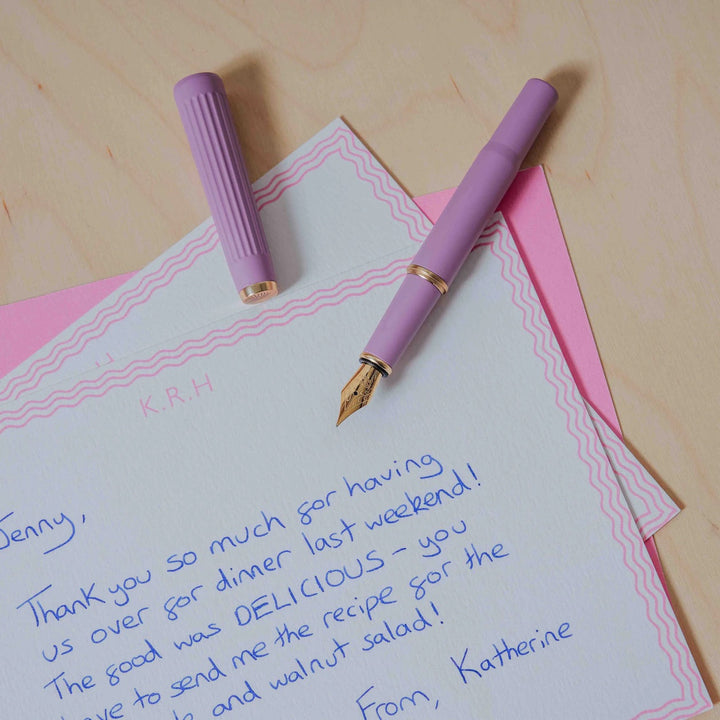 K.R.H
Jenny,
Thank you so much for having
us over for dinner last weekend!
The food was DELICIOUS – you
have to send me the recipe for the
and walnut salad!
From, Katherine